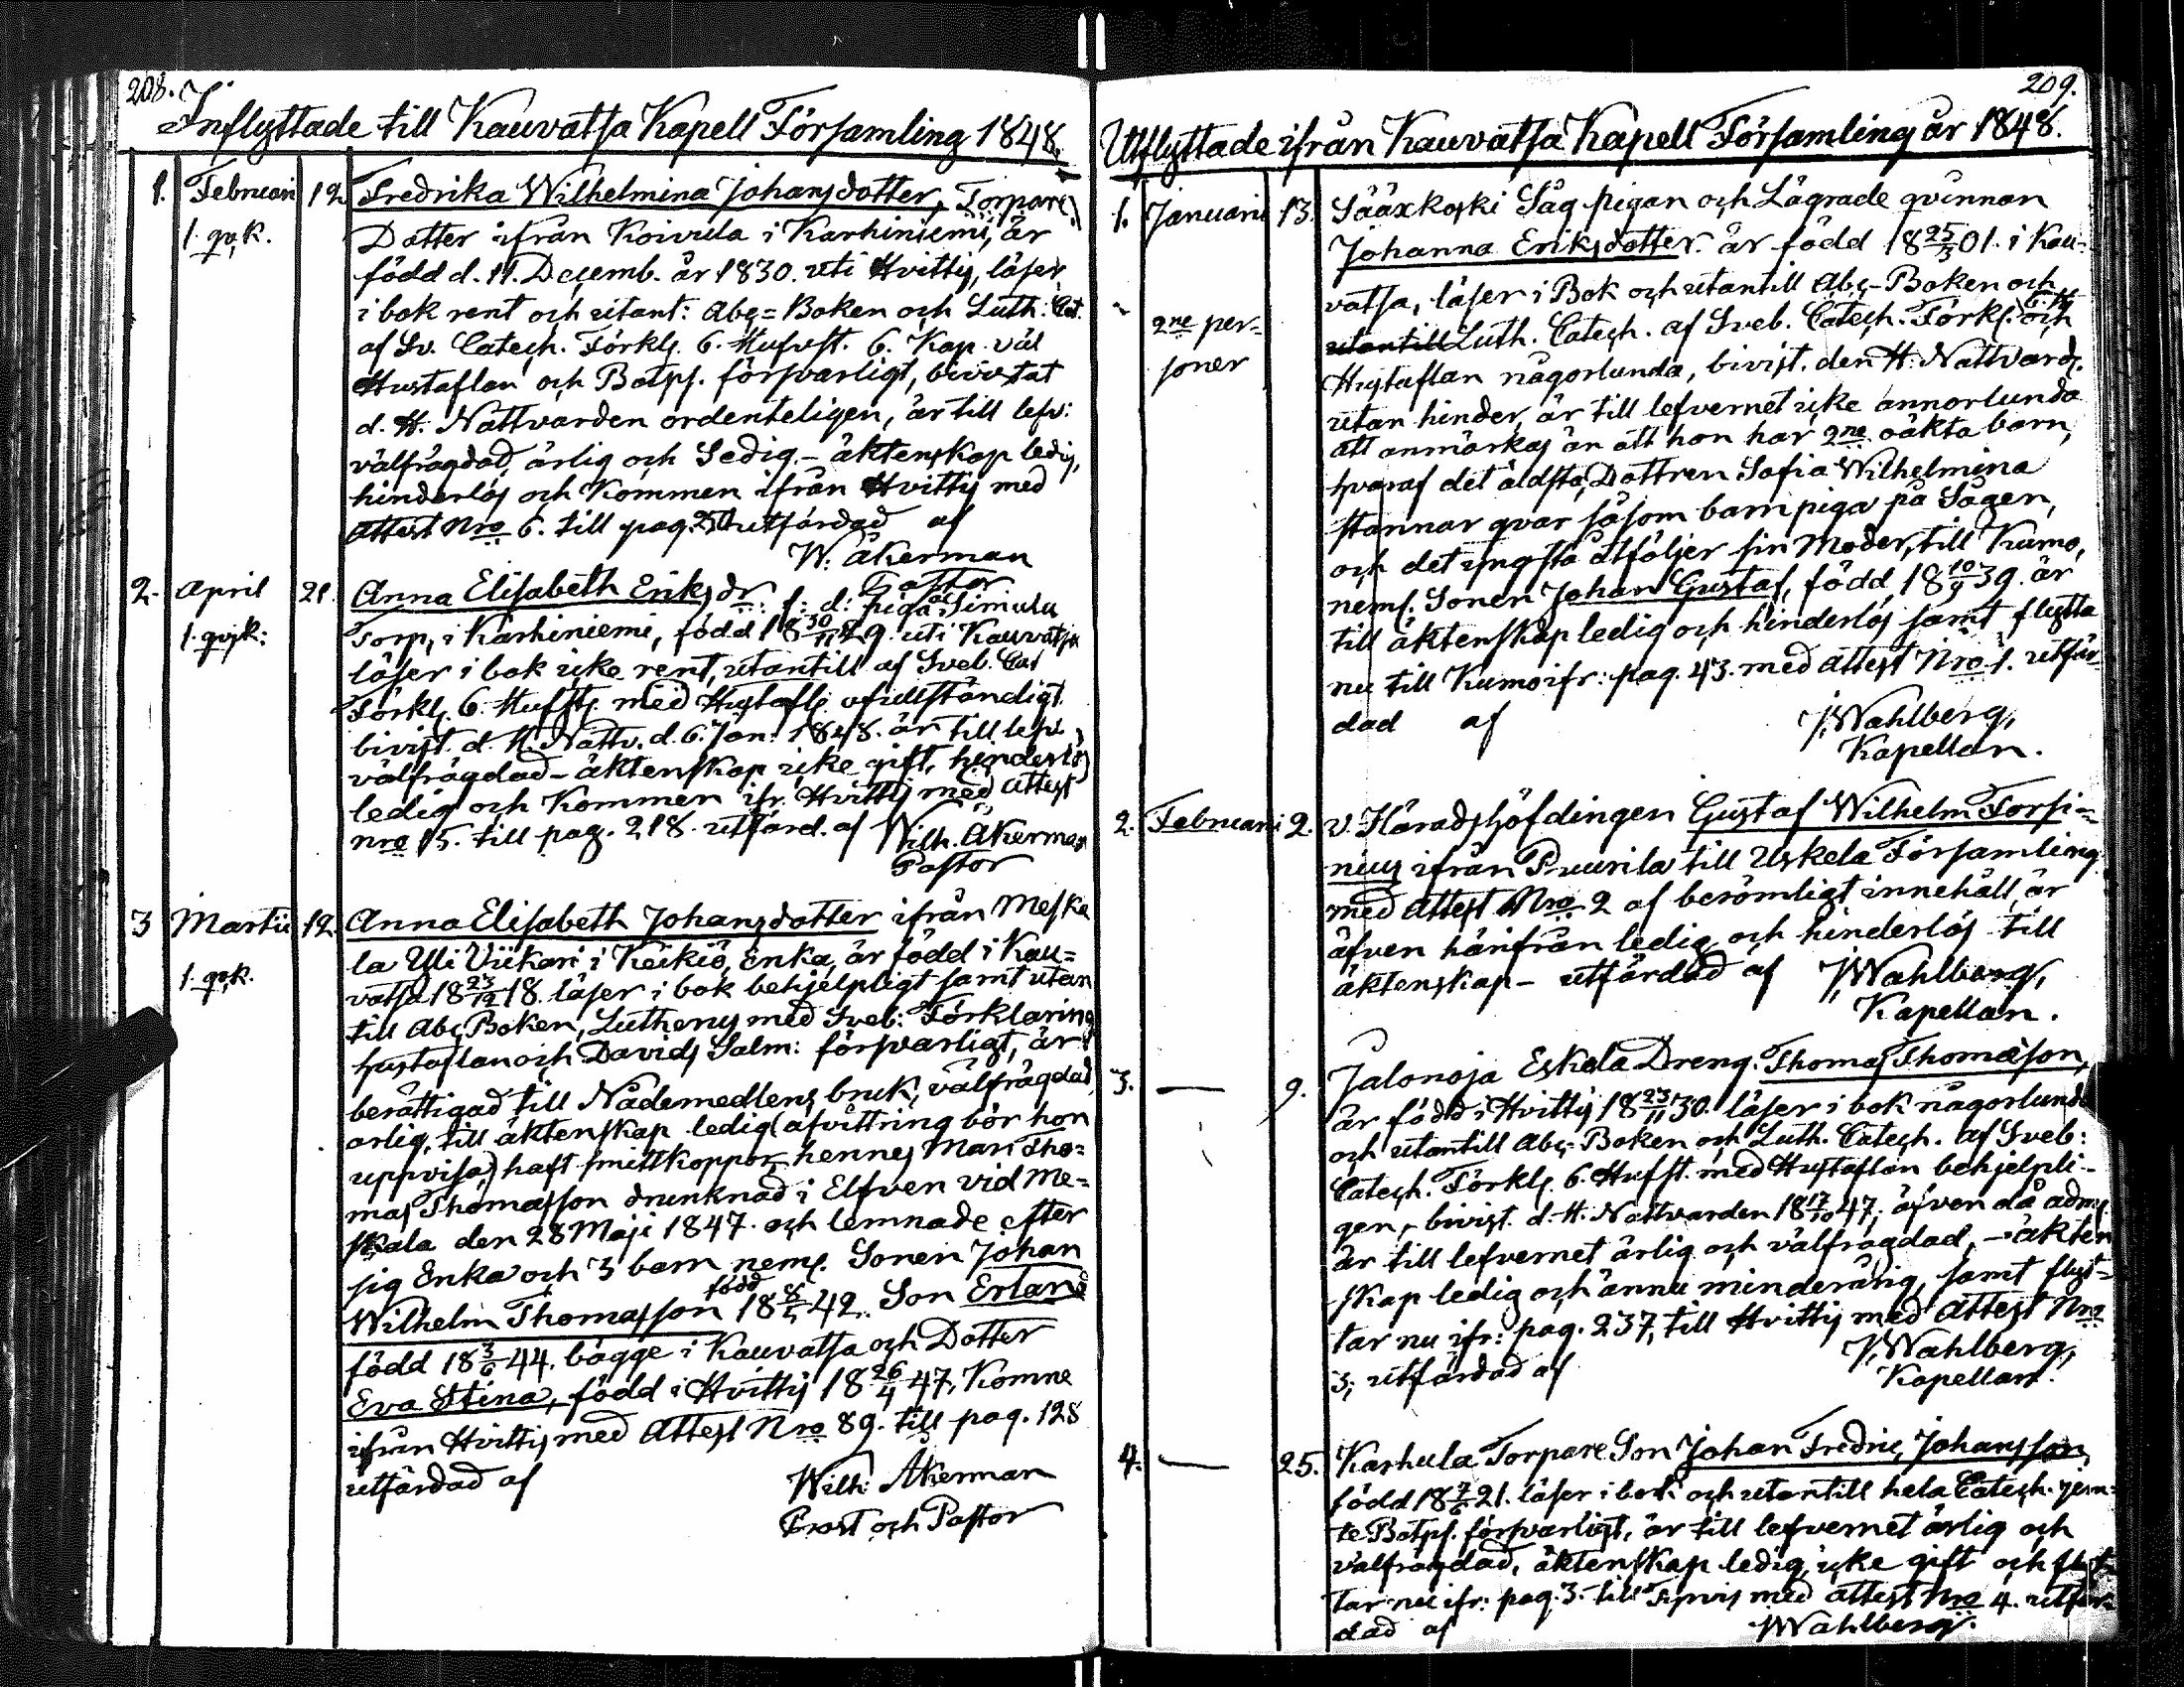 208.
Inflyttade till Kauvatsa Kapell Församling 1848.
1. Februari 12. Fredrika Wilhelmina Johansdotter, Torpare
1. qv.k. Dotter ifrån Koivula i Karhiniemi, är
född d. 11. Decemb. år 1830. uti Hvittis, läser,
i bok rent och utant: Abc=Boken och Luth: Cat.
af Sv. Catech. Förkl. 6. Hufvst. 6. Kap. väl
Hustaflan och Botps. försvarligt, bivistat
d. H. Nattvarden ordenteligen, är till lefv:
välfrägdad, ärlig och Sedig, - äktenskap ledig,
hinderlös och Kommen ifrån Hvittis med
attest Nro 6. till pag. utfärdad af
W. Åkerman
Pastor
2. April 21. Anna Elisabeth Eriksdr: f: d: piga Simula
1. qvk: Torp, i Karhiniemi, född 18 30/11 29. uti Kauvatsa
läser i bok icke rent, utantill af Sveb. Cat
Förkl. 6. Hufst. med Hustafl. ofullständigt
bivist. d. H. Nattv. d. 6. Jan: 1848. är till lefv.
välfrägdad - äktenskap icke gift, hinderlös
ledig och Kommen ifr. Hvittis med attest
nro 15. till pag. 218. utfärd. af Wilh. Åkerman
Pastor
3 Martii 12. Anna Elisabeth Johansdotter ifrån Meska
la Uli Viikari i Keikiö, Enka, är född i Kau=
1. qv.k. vatsa 18 23/12 18. läser i bok behjelpligt samt utan
till Abc Boken, Lutherus med Sveb: Förklaring
hustaflan och Davids Salm: försvarligt, är
berättigad till Nådemedlens bruk, välfrägdad,
ärlig, till äktenskap ledig (afvittring bör hon
uppvisa,) haft smittkoppor, hennes Man Tho=
mas Thomasson drunknad i Elfven vid Me=
skala den 28 Maji 1847. och lemnade efter
sig Enka och 3 barn neml. Sonen Johan
Wilhelm Thomasson född 18 8/5 42. Son Erland
född 18 3/6 44. bägge i Kauvatsa och Dotter
Eva Stina, född i Hvittis 18 26/4 47, Komne
ifrån Hvittis med Attest Nro 89. till pag. 128
utfärdad af Wilh: Åkerman
Prost och Pastor
209.
Utflyttade ifrån Kauvatsa Kapell Församling år 1848.
1. Januari 13. Sääxkoski Såg pigan och Lägrade qvinnan
Johanna Eriksdotter. är född 18 25/3 01. i Kau-
vatsa, läser i Bok och utantill Abc-Boken och
2ne per= utantill Luth. Catech. af Sveb. Catech. Förkl. 6. H. och
soner Hustaflan någorlunda, bivist. den H. Nattvard.
utan hinder, är till lefvernet icke annorlunda
att anmärkas än att hon har 2ne oäkta barn,
hvaraf det äldsta, Dottren Sofia Wilhelmina
stannar qvar såsom barnpiga på Sågen,
och det yngsta åtföljer sin Moder, till Kumo,
neml. Sonen Johan Gustaf, född 18 10/9 39. är
till äktenskap ledig och hinderlös samt flytta
nu till Kumo ifr: pag. 43. med attest Nro 1. utfär
dad af J. Wahlberg,
Kapellan.
2. Februari 2. v. Häradshöfdingen Gustaf Wilhelm Forsi=
nius ifrån Puurila till Uskela Församling
med attest Nro 2 af berömligt innehåll, är
äfven härifrån ledig och hinderlös till
äktenskap - utfärdad af J. Wahlberg,
Kapellan.
3. — 9. Jalonoja Eskola Dreng. Thomas Thomasson,
är född i Hvittis 18 23/11 30. läser i bok någorlunda
och utantill Abc-Boken och Luth. Catech. af Sveb:
Catech. Förkl. 6. Hufst. med Hustaflan behjelpli-
gen, bivist. d. H. Nattvarden 18 17/10 47, äfven då adm.
är till lefvernet ärlig och välfragdad, - äkten
skap ledig och ännu minderårig, samt flyt=
tar nu ifr: pag. 237, till Hvittis med attest Nro
3, utfärdad af J. Wahlberg,
Kapellan.
4. — 25. Karhula Torpare Son Johan Fredric Johansson,
född 18 7/6 21. läser i bok och utantill hela Catech. jem=
te Botps. försvarligt, är till lefvernet ärlig och
välfrägdad, äktenskap ledig, icke gift och flyt
tar nu ifr: pag. 3. till med attest Nro 4. utfär=
dad af J. Wahlberg.